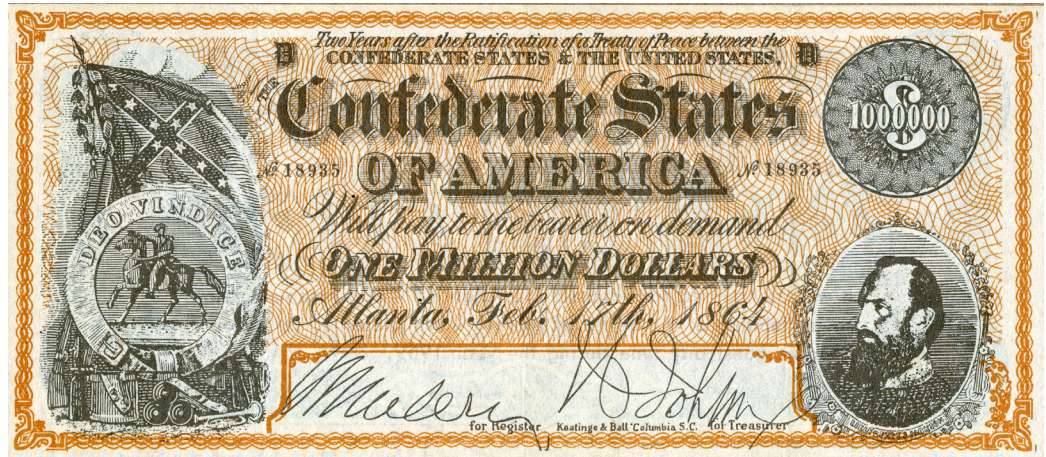 Two Years after the Ratification of a Treaty of Peace between the
CONFEDERATE STATES & THE UNITED STATES,
THE
Confederate States
1000000
$
Nº 18935
OF AMERICA
Nº 18935
Will pay to the bearer on demand
DEO VINDICE
ONE MILLION DOLLARS
Atlanta, Feb. 17th, 1864
for Register
Keatinge & Ball Columbia S.C.
for Treasurer